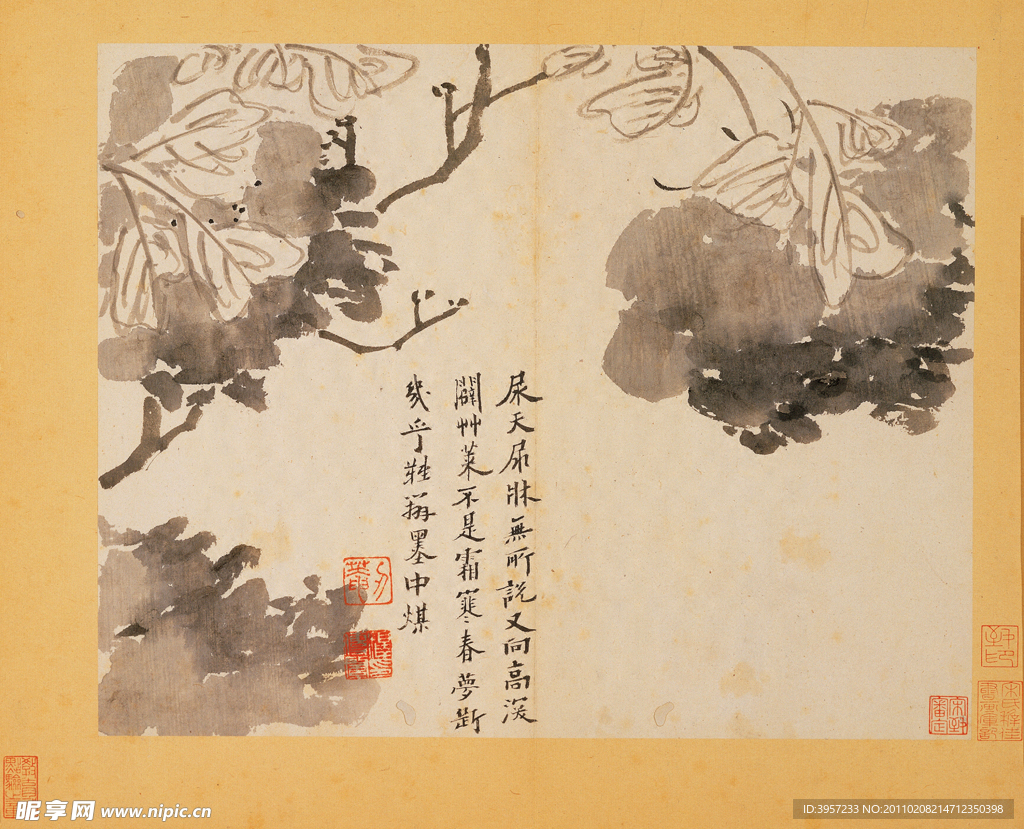 屎天尿牀無所說又向高深
闢艸萊不是霜寒春夢斷
幾乎難辨墨中煤
昵享网 www.nipic.cn
ID:3957233 NO:20110208214712350398